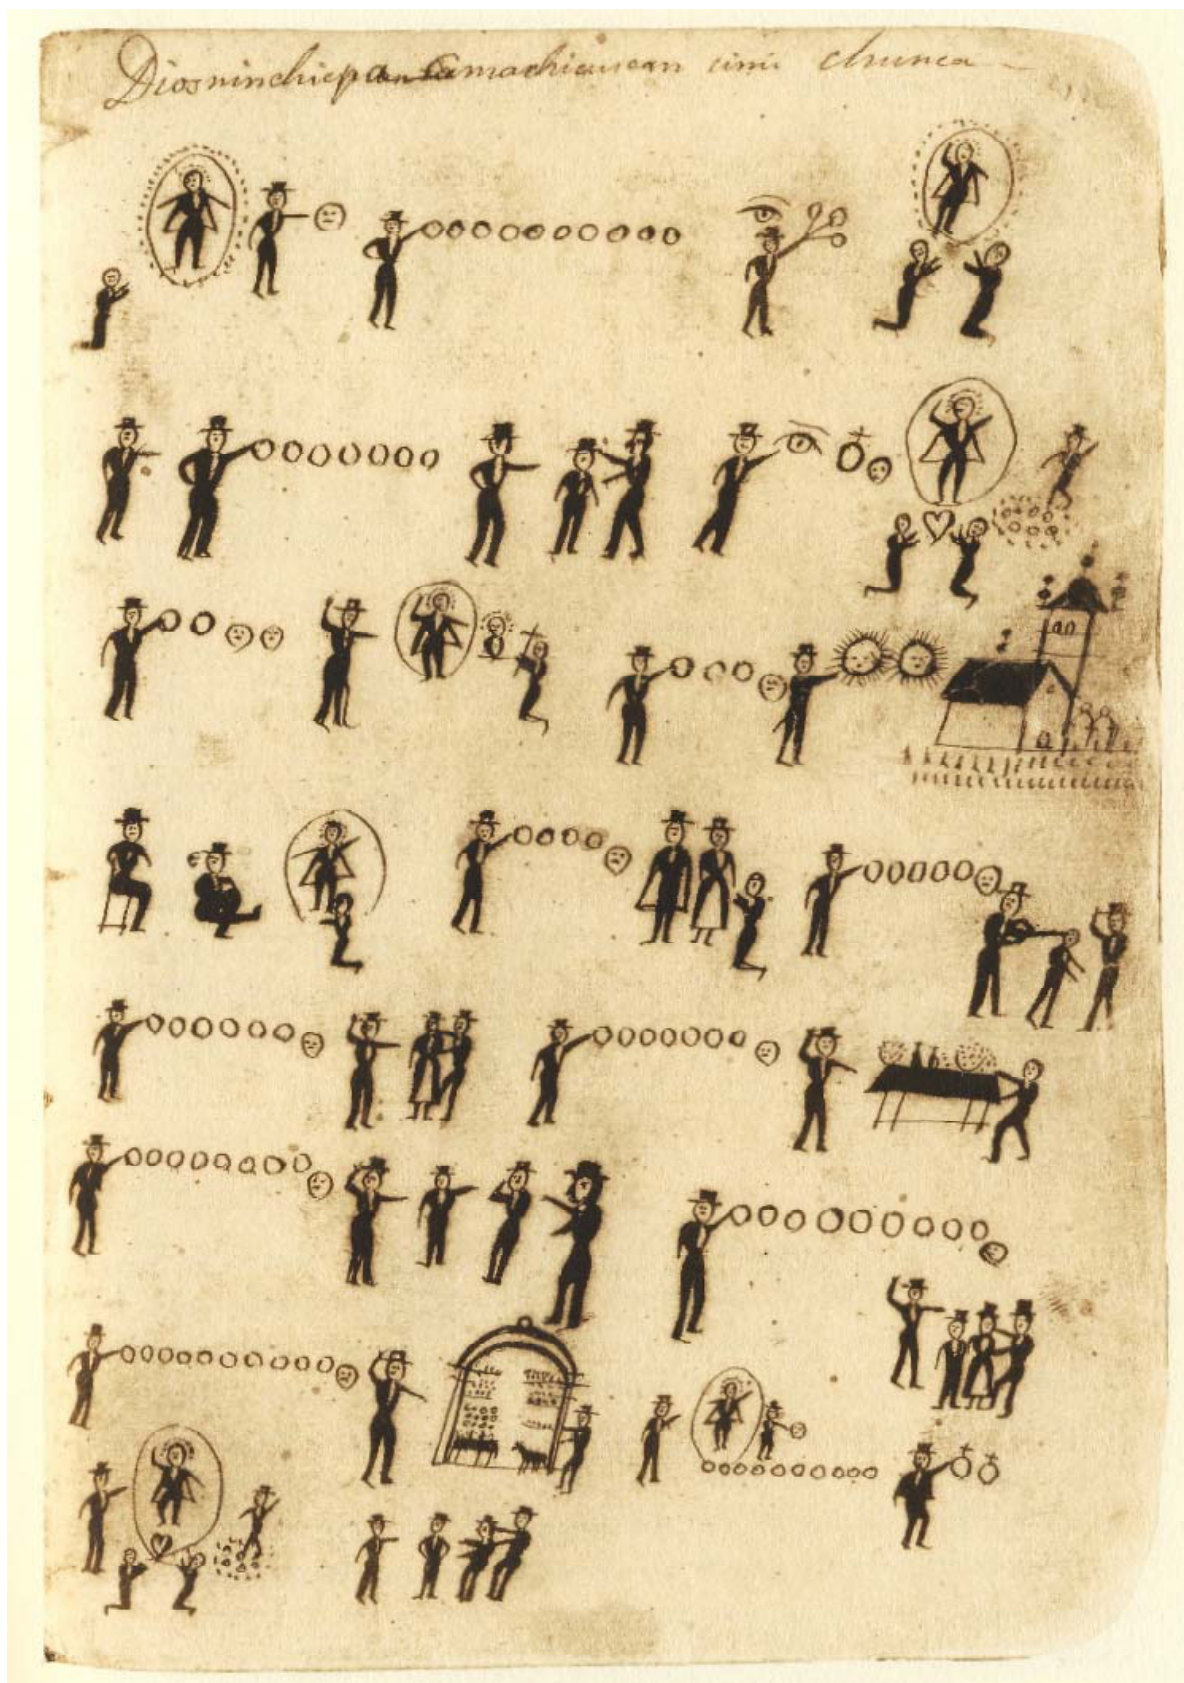 Diosninchicpa camachicuscan simi chunca